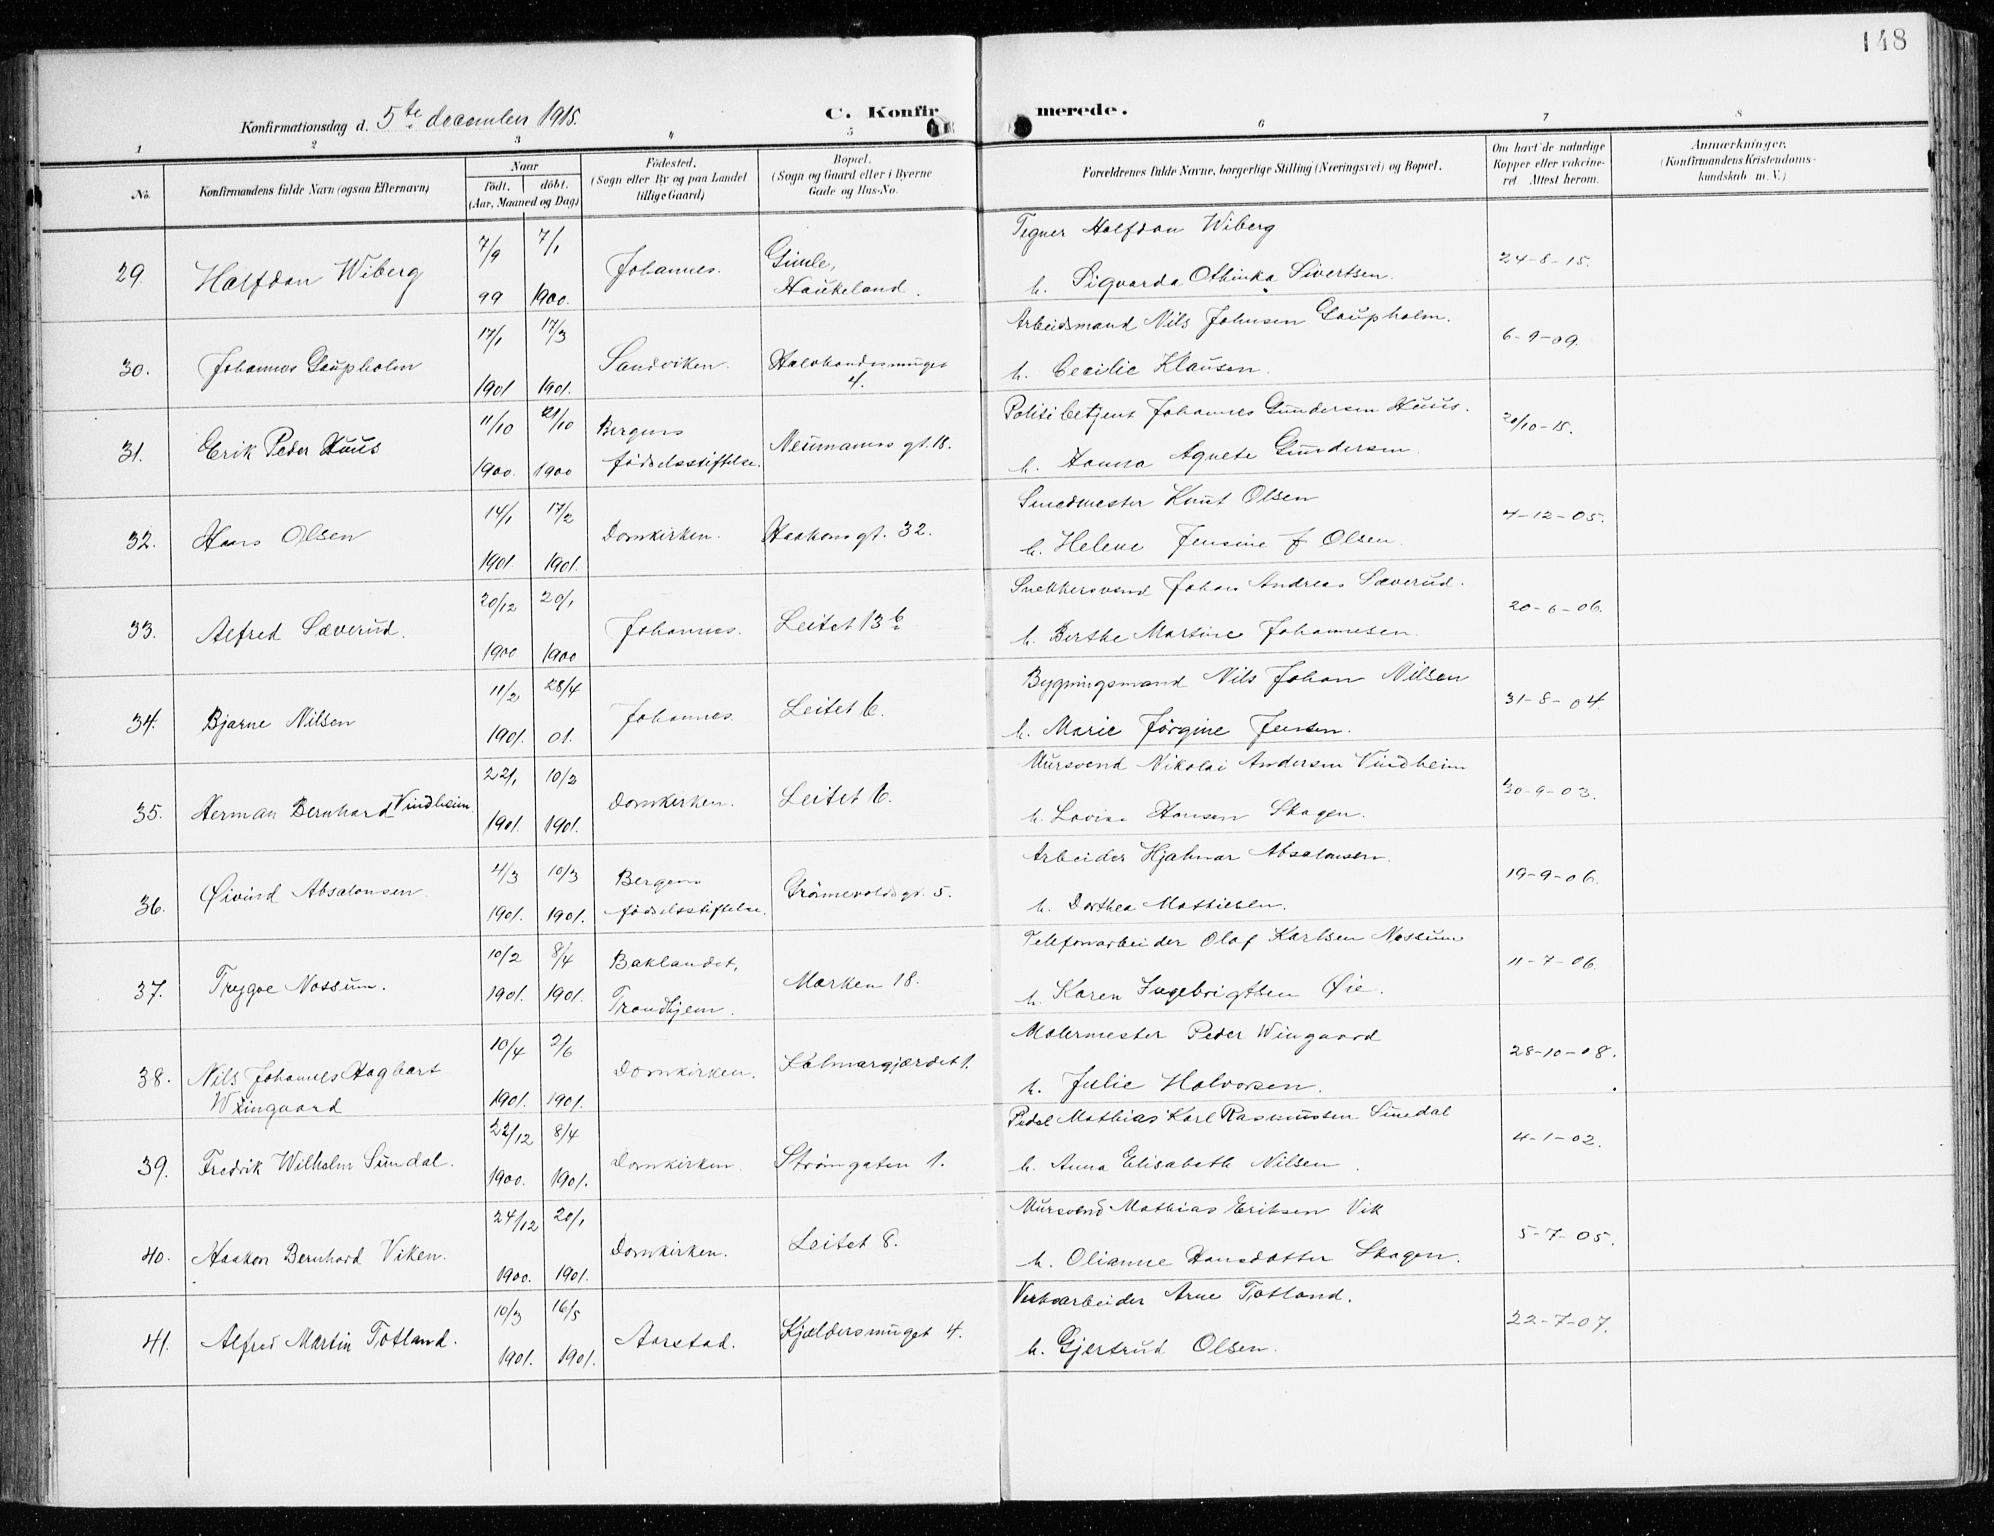 148
Konfirmationsdag d. 5te december 1915.
C. Konfirmerede.
1 2 3 4 5 6 7 8
No. Konfirmandens fulde Navn (ogsaa Efternavn) Naar født. døbt. (Aar, Maaned og Dag) Fødested. (Sogn eller By og paa Landet tillige Gaard) Bopæl. (Sogn og Gaard eller i Byerne Gade og Hus-No. Forældrenes fulde Navne, borgerlige Stilling (Næringsvei) og Bopæl. Om havt de naturlige Kopper eller vakcineret. Attest herom. Anmærkninger. (Konfirmandens Kristendomskundskab m. V.)
29. Halfdan Wiberg 7/9 99 7/1 1900. Johannes. Gimle, Haukeland. Tegner Halfdan Wiberg
h. Sigvarda Othinka Sivertsen. 24-8-15.
30. Johannes Gaupholm 17/1 1901 17/3 1901. Sandviken. 4. Arbeidsmand Nils Johnsen Gaupholm.
h. Cecilie Klausen. 6-9-09.
31. Erik Peder Huus 11/10 1900. 21/10 1900 Bergens fødselsstiftelse. Neumanns gt. 18. Politibetjent Johannes Gundersen Huus.
h. Hanna Agnete Gundersen. 20/10-15.
32. Hans Olsen 14/1 1901 17/2 1901. Domkirken. Haakonsgt. 32. Smedmester Knut Olsen
h. Helene Jensine f Olsen. 4-12-05.
33. Alfred Sæverud. 20/12 1900 20/1 1900 Johannes. Leitet 13 b Snekkersvend Johan Andreas Sæverud.
h. Berthe Martine Johannesen. 20-6-06.
34. Bjarne Nilsen 11/2 1901. 28/4 01. Johannes. Leitet 6. Bygningsmand Nils Johan Nilsen
h. Marie Jørgine Jensen. 31-8-04.
35. Herman Bernhard Vindheim 22/1 1901. 10/3 1901. Domkirken. Leitet 6. Mursvend Nikolai Andersen Vindheim
h. Lovise Hansen Skagen. 30-9-03.
36. Øivind Absalonsen 4/3 1901. 10/3 1901. Bergens fødselsstiftelse. 5. Arbeider Hjalmar Absalonsen.
h. Dorthea Mathiesen. 19-9-06.
37. Trygve Nossum. 10/2 1901. 8/4 1901. Baklandet, Trondhjem. Marken 18. Telefonarbeider Olaf Karlsen Nossum
h. Karen Ingebrigtsen Øie. 11-7-06.
38. Nils Johannes Hagbart Wingaard 10/4 1901. 2/6 1901. Domkirken. Kalmargjærdet 1. Malermester Peder Wingaard
h. Julie Halvorsen. 28-10-08.
39. Fredrik Wilhelm Sundal. 22/12 1900. 8/4 1901. Domkirken. Strømgaten 1. Pedel Mathias Karl Rasmussen
h. Anna Elisabeth Nilsen. 4-1-02.
40. Haakon Bernhard Viken. 24/12 1900. 20/1 1901. Domkirken. Leitet 8. Mursvend Mathias Eriksen Vik
h. Olianne Hansdatter Skagen. 5-7-05.
41. Alfred Martin Totland. 10/3 1901. 16/5 1901. Aarstad. Kjeldersmuget 4. Verksarbeider Arne Totland.
h. Gjertrud Olsen. 22-7-07.